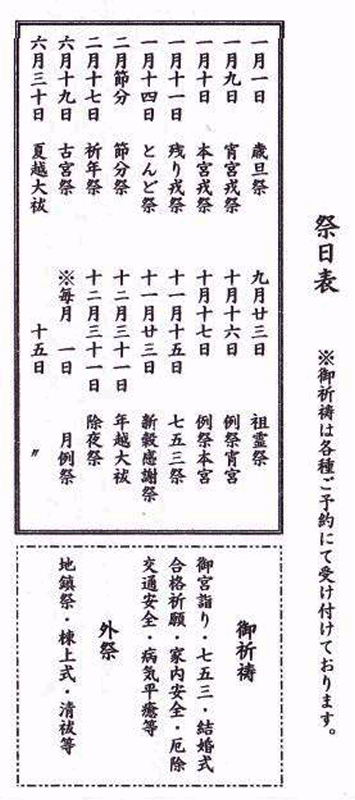 祭日表
※御祈祷は各種ご予約にて受け付けております。
一月一日 歳旦祭
一月九日 宵宮戎祭
一月十日 本宮戎祭
一月十一日 残り戎祭
一月十四日 とんど祭
二月節分 節分祭
二月十七日 祈年祭
六月十九日 古宮祭
六月三十日 夏越大祓
九月廿三日 祖霊祭
十月十六日 例祭宵宮
十月十七日 例祭本宮
十一月十五日 七五三祭
十一月廿三日 新穀感謝祭
十二月三十一日 年越大祓
十二月三十一日 除夜祭
※毎月 一日 月例祭
十五日 〃
御祈祷
御宮詣り・七五三・結婚式
合格祈願・家内安全・厄除
交通安全・病気平癒等
外祭
地鎮祭・棟上式・清祓等